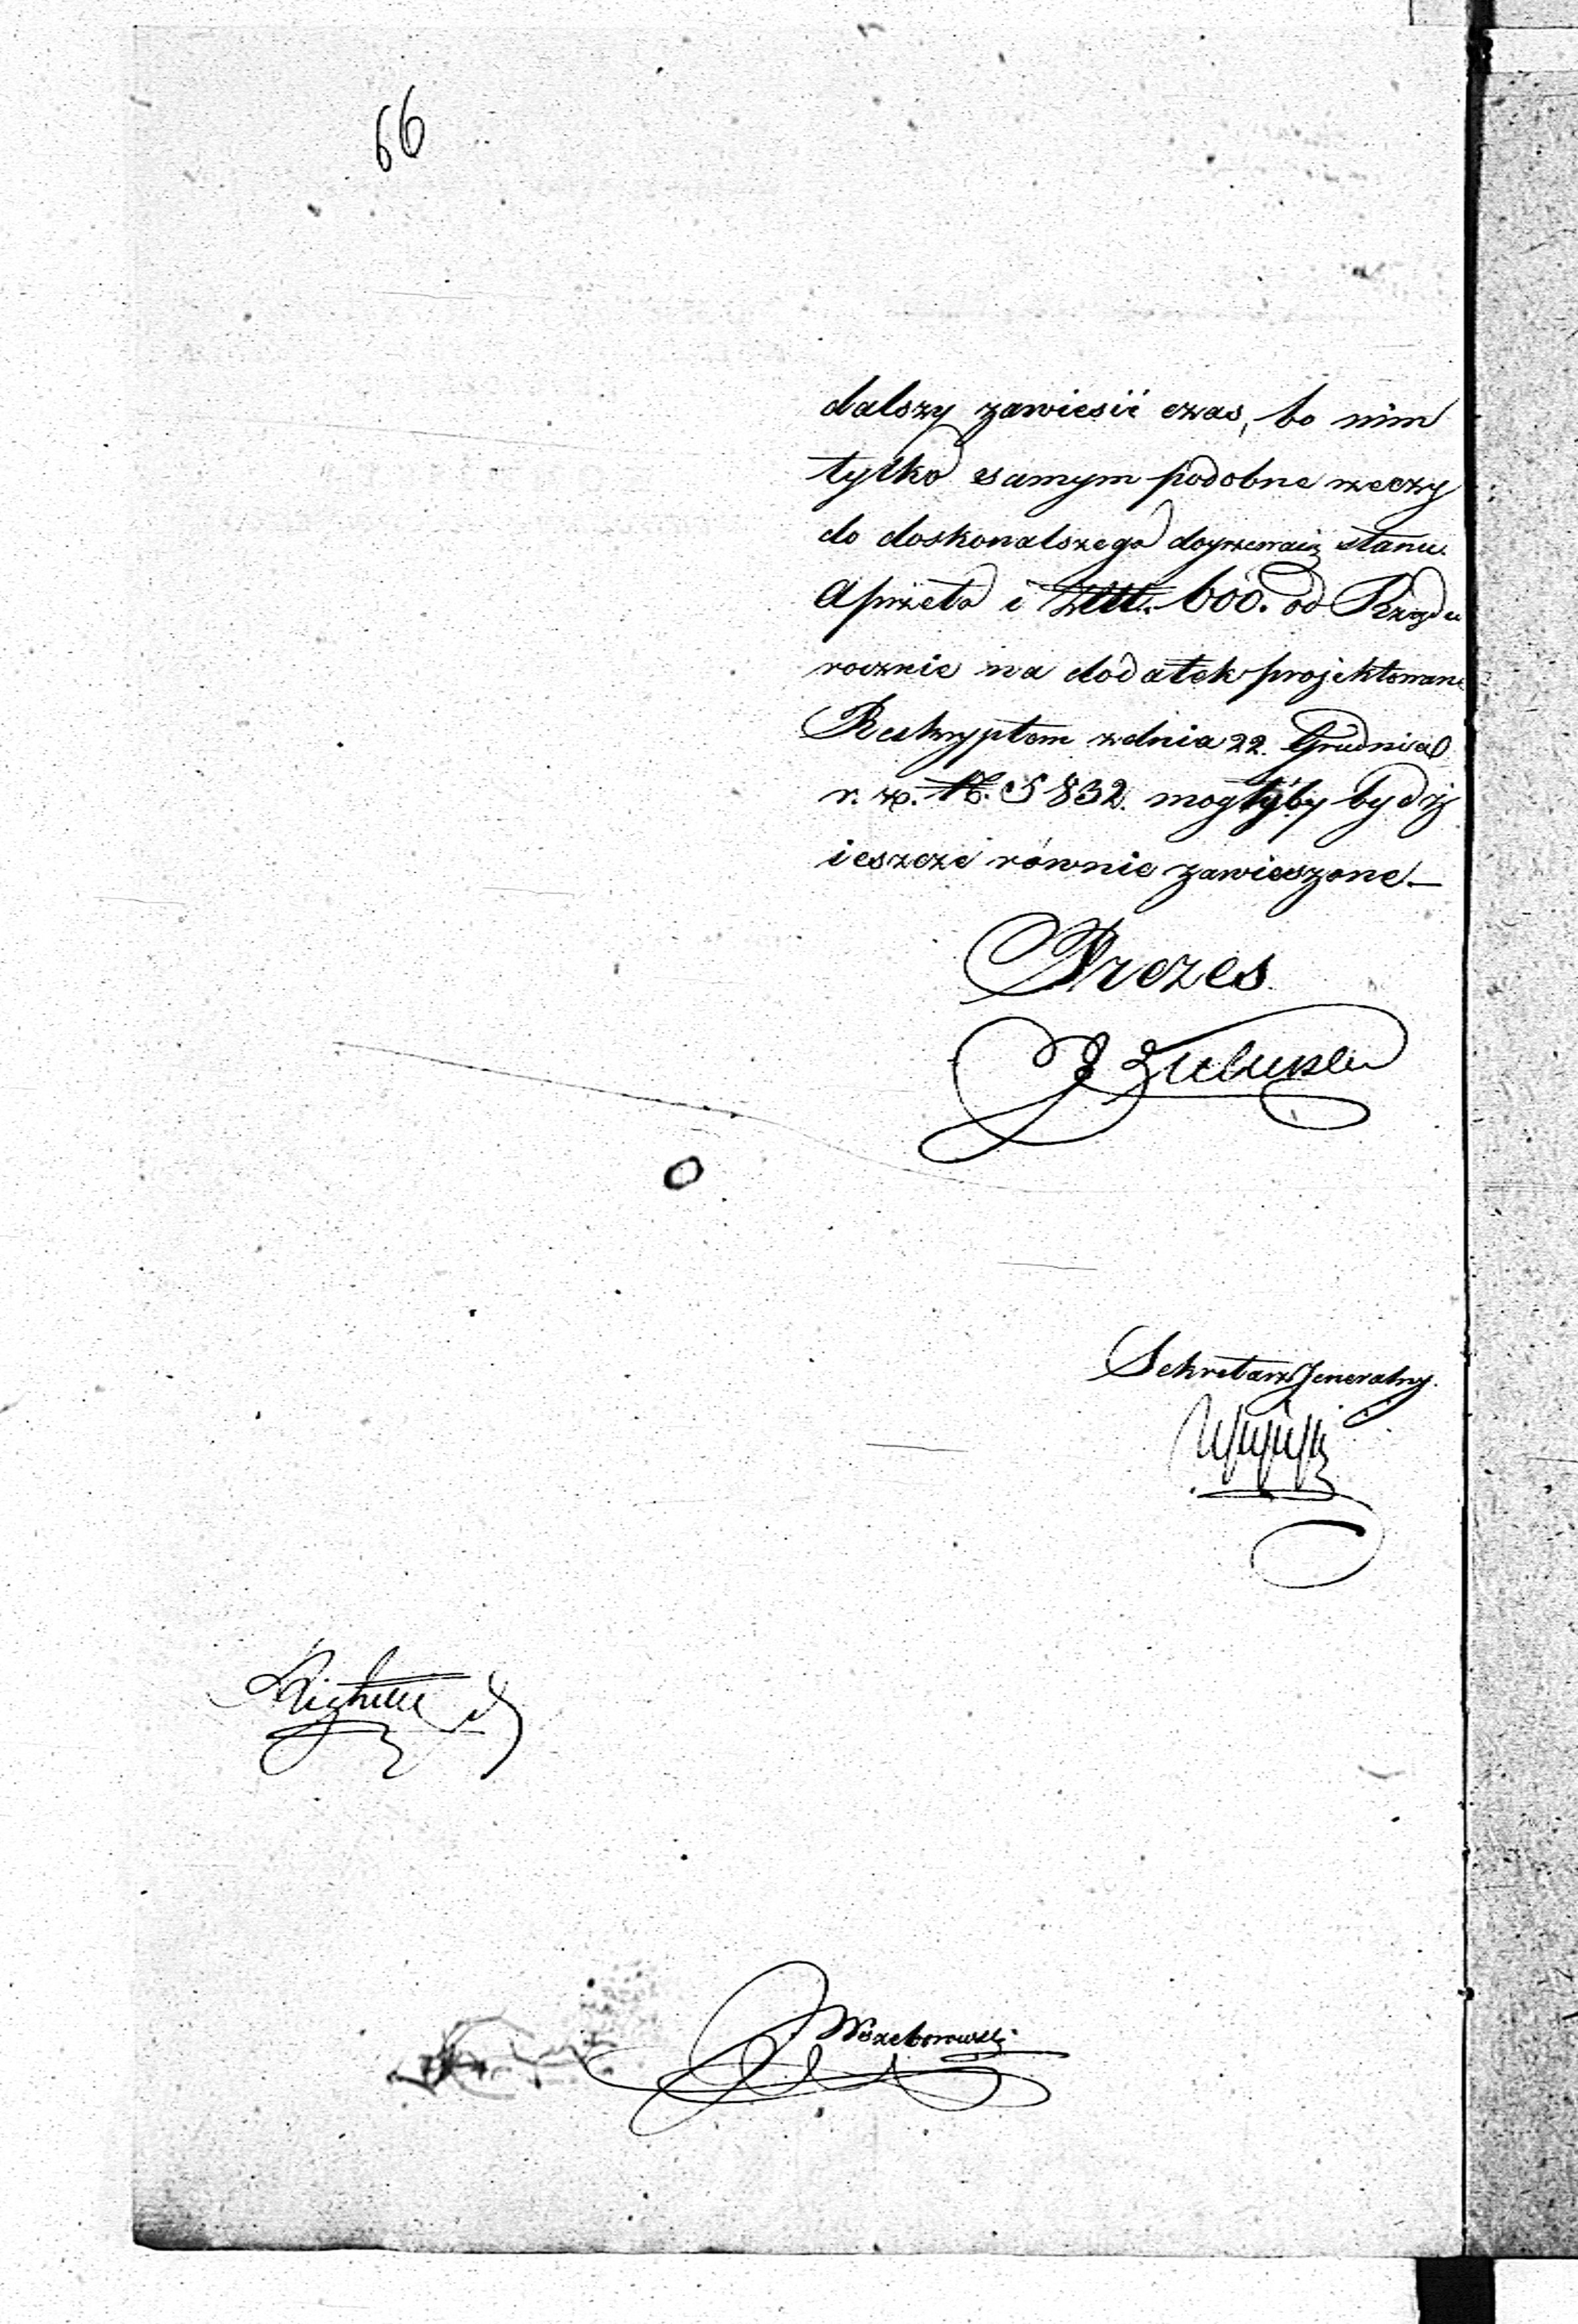 66
dalszy zawiesić czas, bo nim
tylko samym podobne rzeczy
do doskonalszego doyrzewaią stanu.
A przeto i 600. od Rządu
rocznie na dodatek projektowane
Reskryptem z dnia 22. Grudnia
r. z. N. 5832. mogłyby bydź
ieszcze równie zawieszone.—
Prezes
Sekretarz Jeneralny.